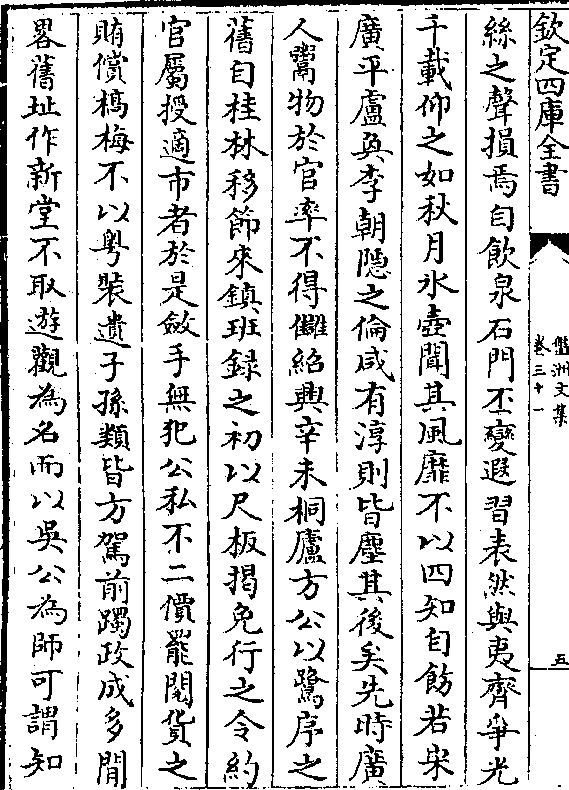 欽定四庫全書
盤洲文集
卷三十一
五
絲之聲損焉自飲泉石門丕變遐習表然與夷齊爭光
千載仰之如秋月氷壺聞其風靡不以四知自飭若宋
廣平盧奐李朝隠之倫咸有淳則皆塵其後矣先時廣
人鬻物於官率不得讎紹興辛未桐廬方公以鷺序之
舊自桂林移節來鎮班録之初以尺板揭免行之令約
官屬授適市者於是斂手無犯公私不二價罷閱貨之
賄償槁梅不以粤裝遺子孫類皆方駕前躅政成多閒
畧舊址作新堂不取遊觀為名而以吳公為師可謂知